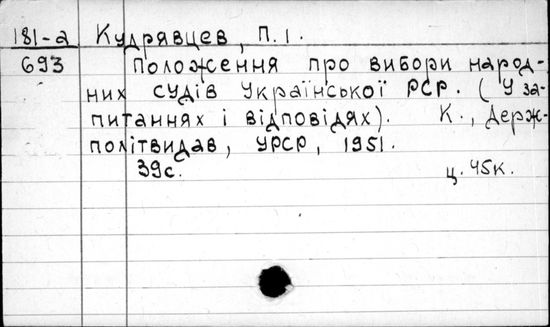 181-а Кудрявцев, П.І.
693 Положення про вибори народ-
них судів Української РСР. (У за-
питаннях і відповідях). К., Держ-
політвидав, УРСР, 1951.
39с. ц. 45к.